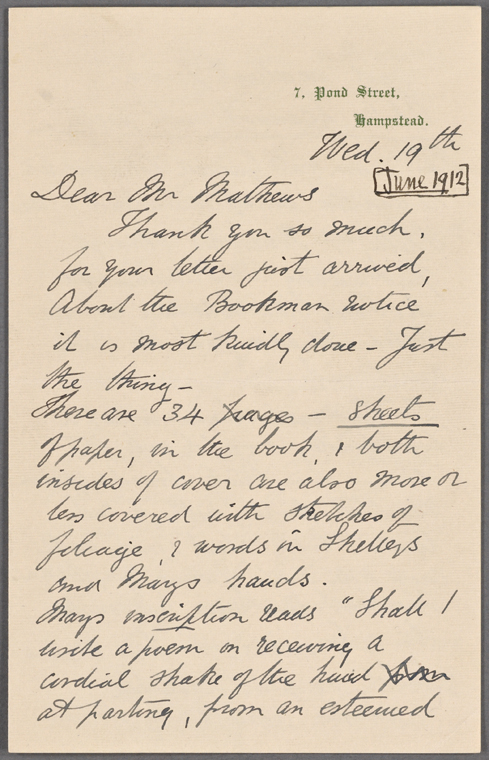 7, Pond Street,
Hampstead.
Wed. 19th
June 1912
Dear Mr Mathews
Thank you so much,
for your letter just arrived,
About the Bookman notice
it is most kindly done - Just
the thing -
There are 34 pages - sheets
of paper, in the book, & both
insides of cover are also more or
less covered with sketches of
foliage, & words in Shelleys
and Marys hands.
Marys inscription reads "Shall I
write a poem on receiving a
cordial shake of the hand
at parting, from an esteemed